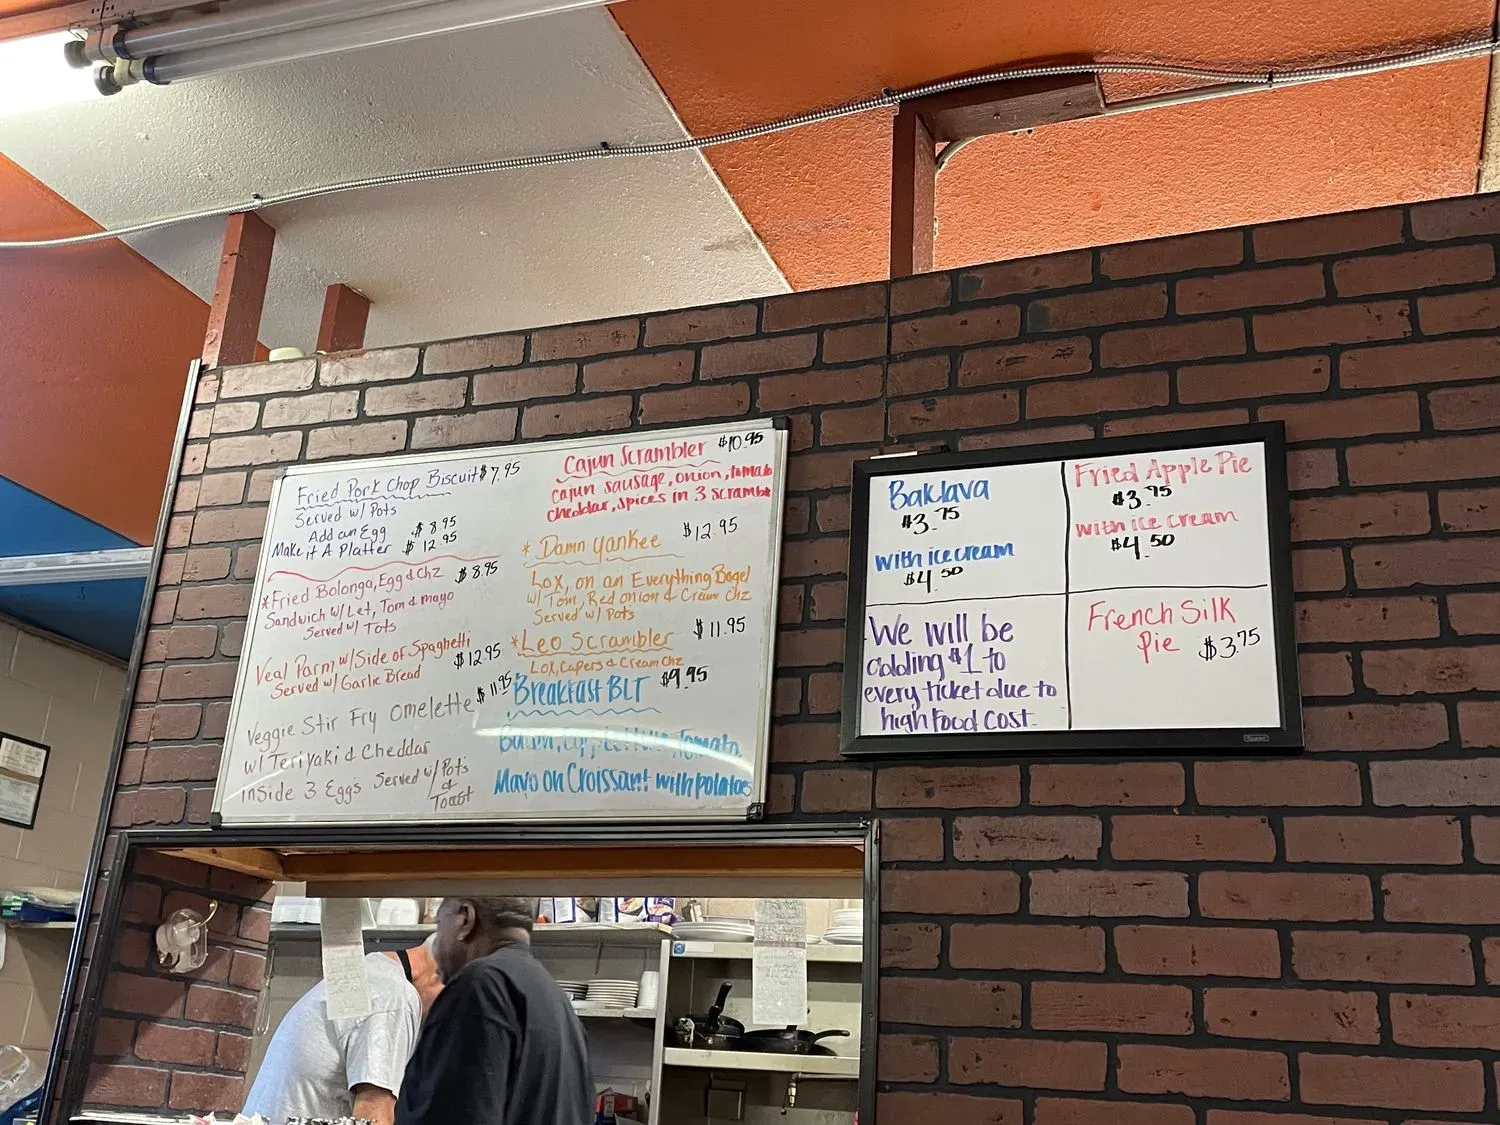 Fried Pork Chop Biscuit $7.95
Served w/ Pots
Add an Egg $8.95
Make it A Platter $12.95
*Fried Bolonga, Egg & Chz $8.95
Sandwich w/ Let, Tom & mayo
Served w/ Tots
Veal Parm w/ Side of Spaghetti
Served w/ Garlic Bread $12.95
Veggie Stir Fry Omelette $11.95
w/ Teriyaki & Cheddar
inside 3 Eggs Served w/ Pots
&
Toast
Cajun Scrambler $10.95
cajun sausage, onion, tomato
cheddar, spices in 3 scramble
* Damn Yankee $12.95
Lox, on an Everything Bagel
w/ Tom, Red onion & Cream Chz
Served w/ Pots
*Leo Scrambler $11.95
Lox, Capers & Cream Chz
Breakfast BLT $9.95
Bacon, egg, Lettuce, Tomato,
Mayo on Croissant with potatoes
Baklava
$3.75
with ice cream
$4.50
Fried Apple Pie
$3.75
with ice cream
$4.50
We will be
adding $1 to
every ticket due to
high Food Cost
French Silk
Pie $3.75